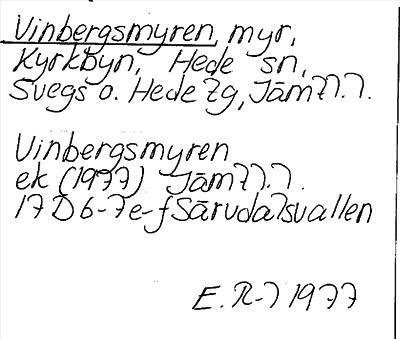 Vinbergsmyren, myr,
Kyrkbyn, Hede sn,
Svegs o. Hede tg, Jämtl.l.
Vinbergsmyren
ek (1977) Jämtl.l.
17 D 6-7e-f Särvdalsvallen
E. R-l 1977